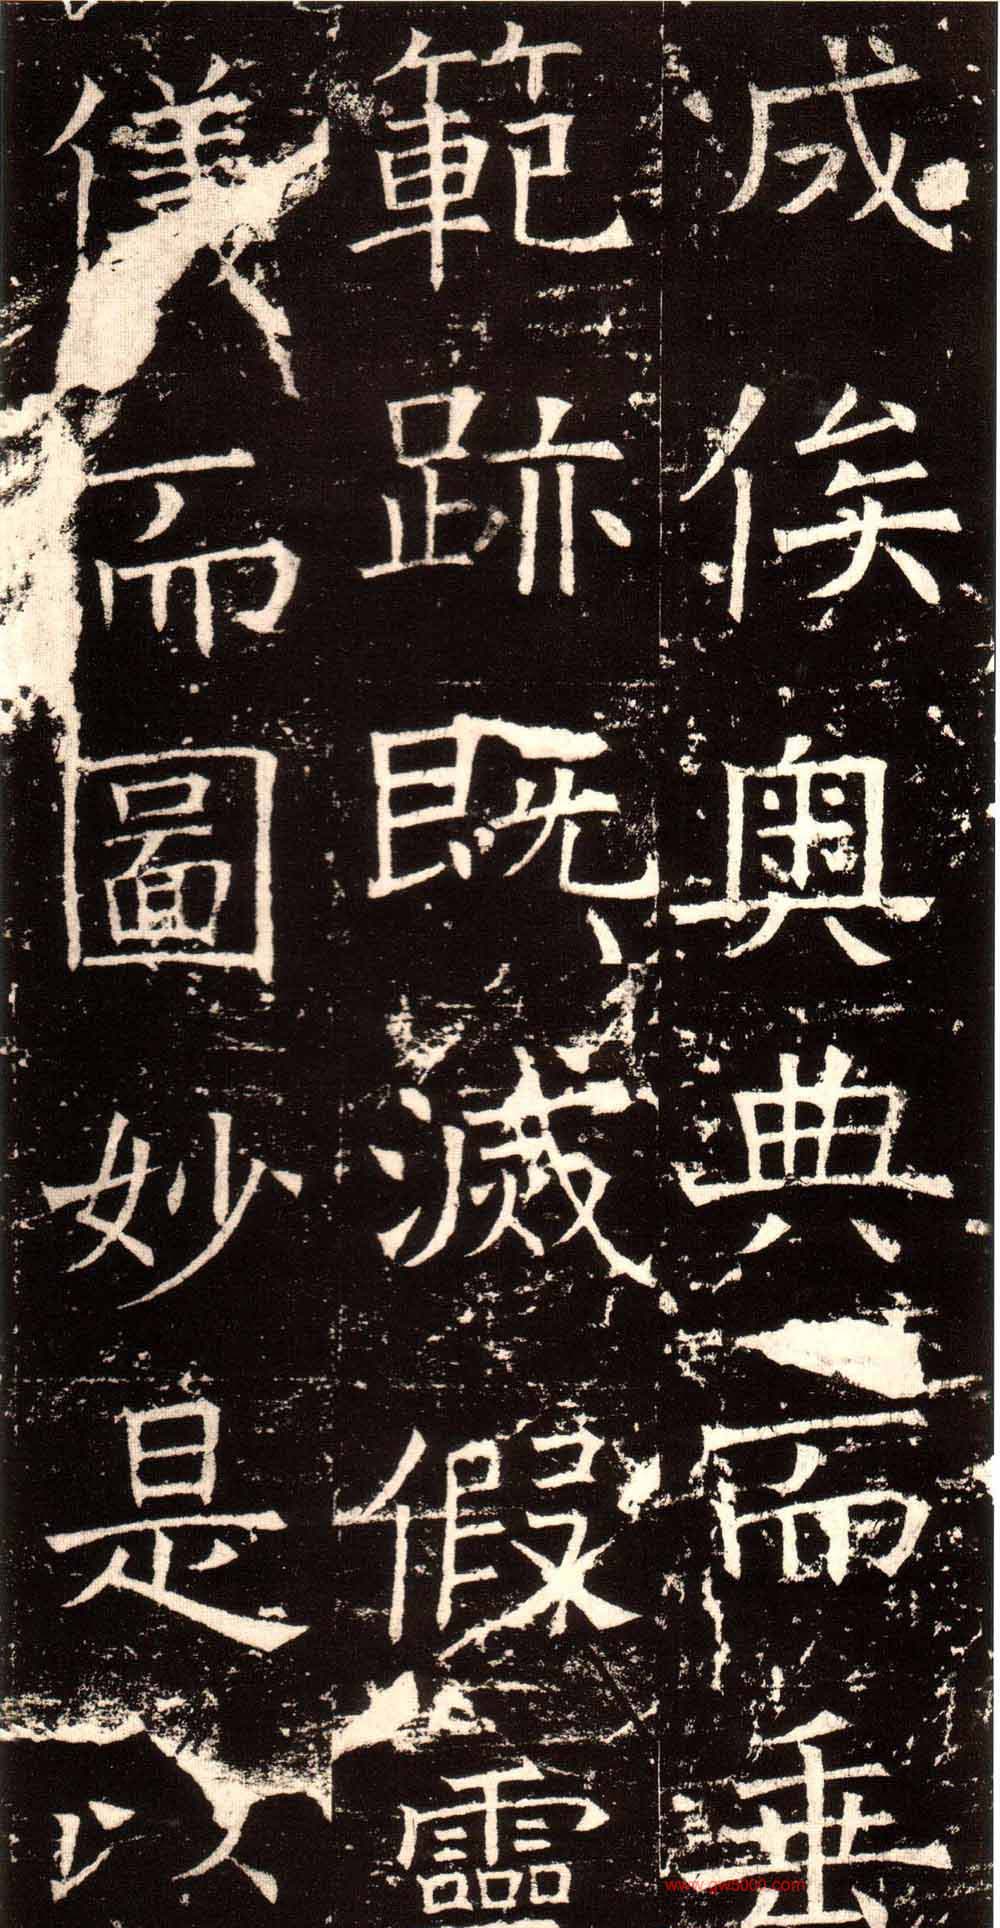 成俟奥典而垂
範跡既滅假靈
儀而圖妙是以
www.qw5000.com